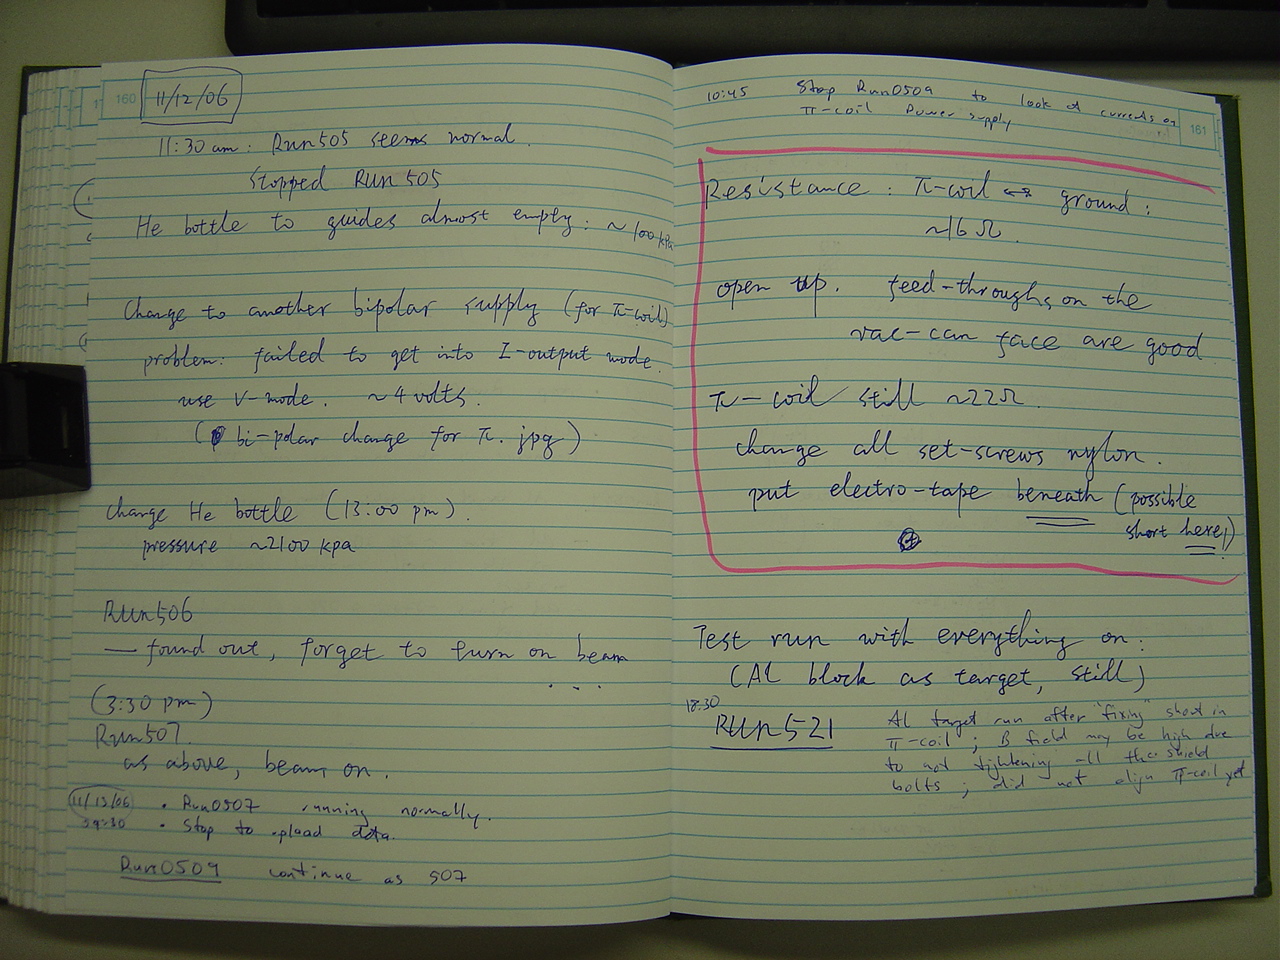 160
11/12/06
11:30 am: Run505 seems normal.
Stopped Run 505
He bottle to guides almost empty: ~100kPa
Change to another bipolar supply (for π-coil)
problem: failed to get into I-output mode.
use V-mode. ~4 volts.
(bi-polar change for π.jpg)
change He bottle (13:00 pm).
pressure ~2100 kpa
Run506
— found out, forget to turn on beam
...
(3:30 pm)
Run507.
as above, beam on.
11/13/06 • Run0507 running normally.
09:30 • Stop to upload data.
Run0509 continue as 507
161
10:45 Stop Run0509 to look at currents on
π-coil Power supply
Resistance: π-coil ↔ ground:
~16 Ω.
open up. feed-throughs on the
vac-can face are good
π-coil still ~22Ω.
change all set-screws nylon.
put electro-tape beneath (possible
short here!)
Test run with everything on:
(AL block as target, still)
18:30
Run521
Al target run after "fixing" short in
π-coil; B field may be high due
to not tightening all the shield
bolts; did not align π-coil yet